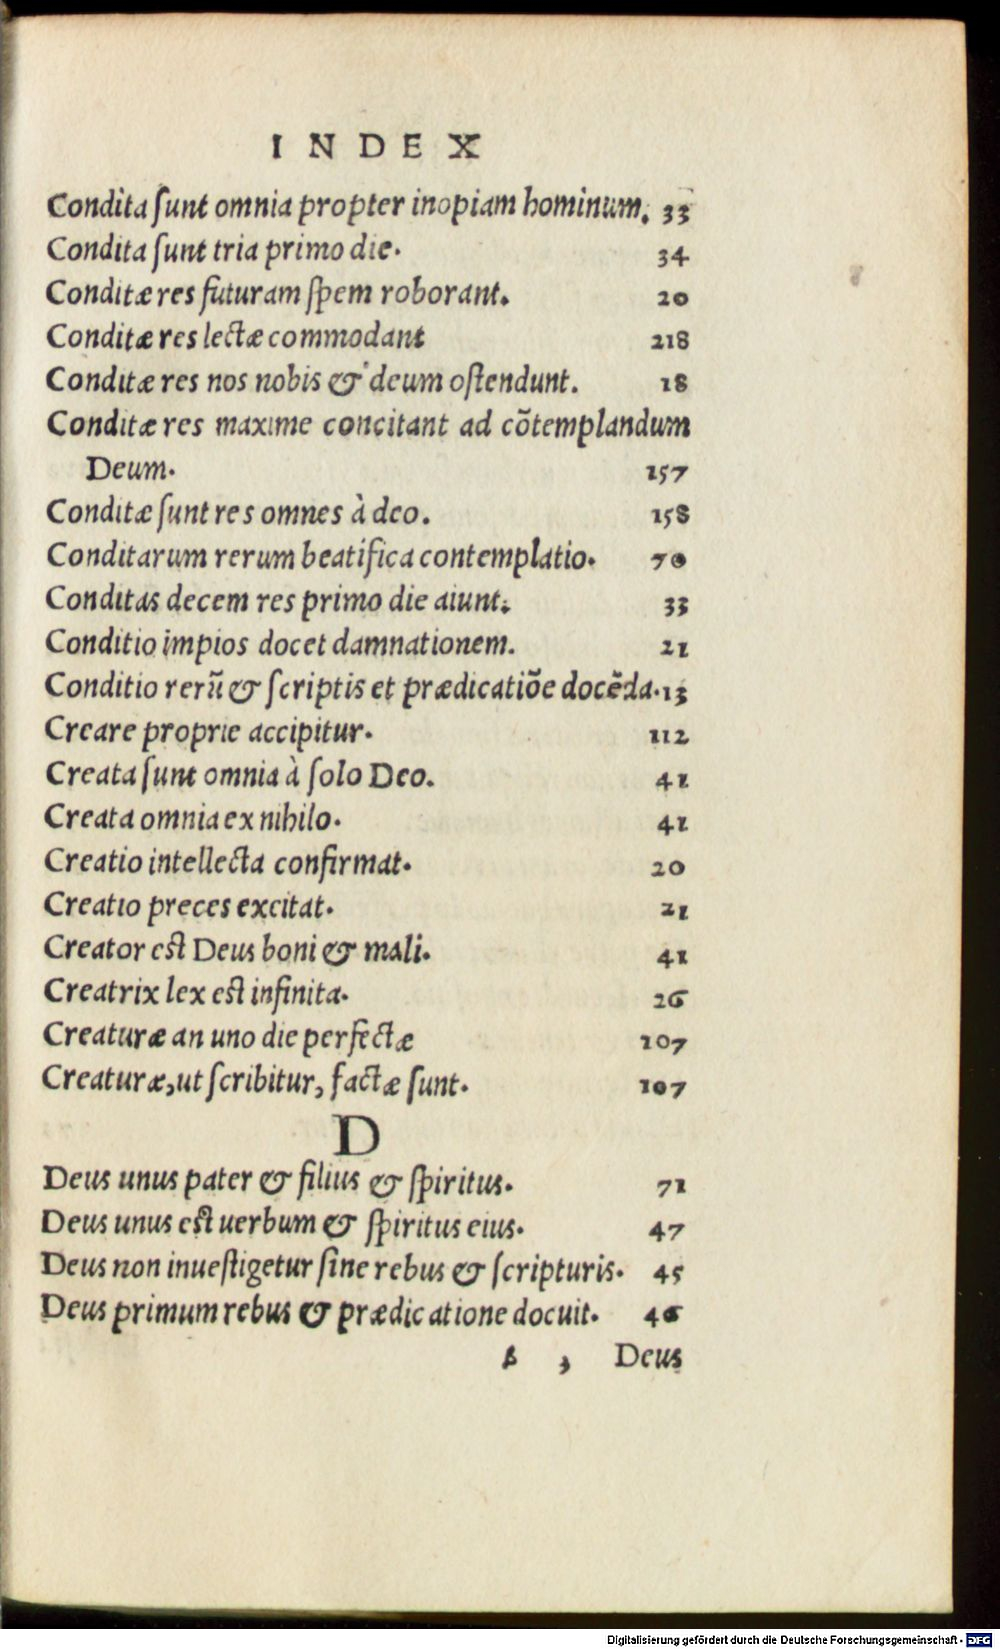 INDEX
Condita sunt omnia propter inopiam hominum. 33
Condita sunt tria primo die. 34
Conditæ res futuram spem roborant. 20
Conditæ res lectæ commodant 218
Conditæ res nos nobis & deum ostendunt. 18
Conditæ res maxime concitant ad cōtemplandum
Deum. 157
Conditæ sunt res omnes à deo. 158
Conditarum rerum beatifica contemplatio. 70
Conditas decem res primo die aiunt. 33
Conditio impios docet damnationem. 21
Conditio rerū & scriptis et prædicatiōe docēda. 13
Creare proprie accipitur. 112
Creata sunt omnia à solo Deo. 41
Creata omnia ex nihilo. 41
Creatio intellecta confirmat. 20
Creatio preces excitat. 21
Creator est Deus boni & mali. 41
Creatrix lex est infinita. 26
Creaturæ an uno die perfectæ 107
Creaturæ, ut scribitur, factæ sunt. 107
D
Deus unus pater & filius & spiritus. 71
Deus unus est uerbum & spiritus eius. 47
Deus non inuestigetur sine rebus & scripturis. 45
Deus primum rebus & prædicatione docuit. 46
3 Deus
Digitalisierung gefördert durch die Deutsche Forschungsgemeinschaft - DFG